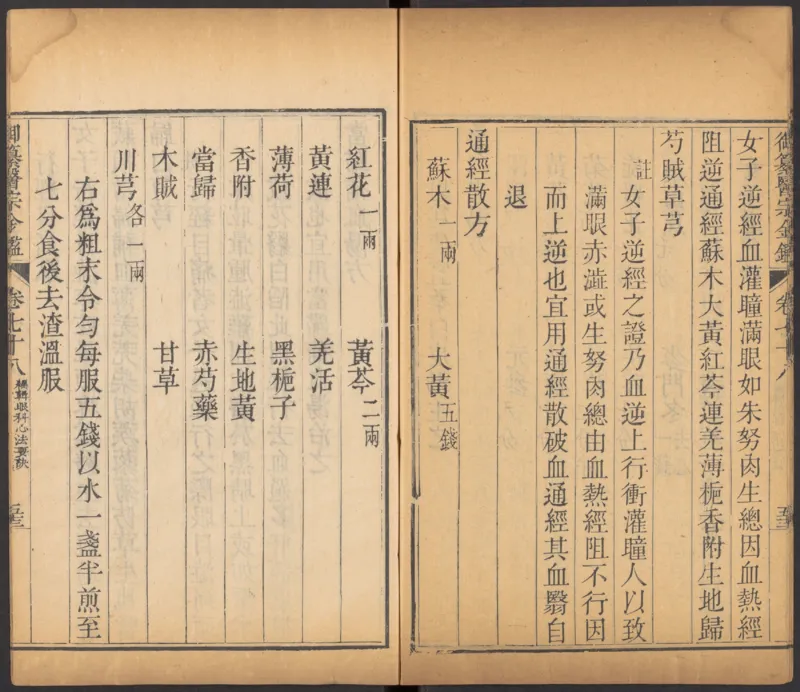 御纂醫宗金鑑 卷七十八 五三
女子逆經血灌瞳滿眼如朱努肉生總因血熱經
阻逆通經蘇木大黃紅芩連羌薄梔香附生地歸
芍賊草芎
註 女子逆經之證乃血逆上行衝灌瞳人以致
滿眼赤澁或生努肉總由血熱經阻不行因
而上逆也宜用通經散破血通經其血翳自
退
通經散方
蘇木一兩 大黃五錢
紅花一兩 黃芩二兩
黃連 羌活
薄荷 黑梔子
香附 生地黃
當歸 赤芍藥
木賊 甘草
川芎各一兩
右為粗末令勻每服五錢以水一盞半煎至
七分食後去渣溫服
御纂醫宗金鑑 卷七十八 編輯眼科心法要訣 五三